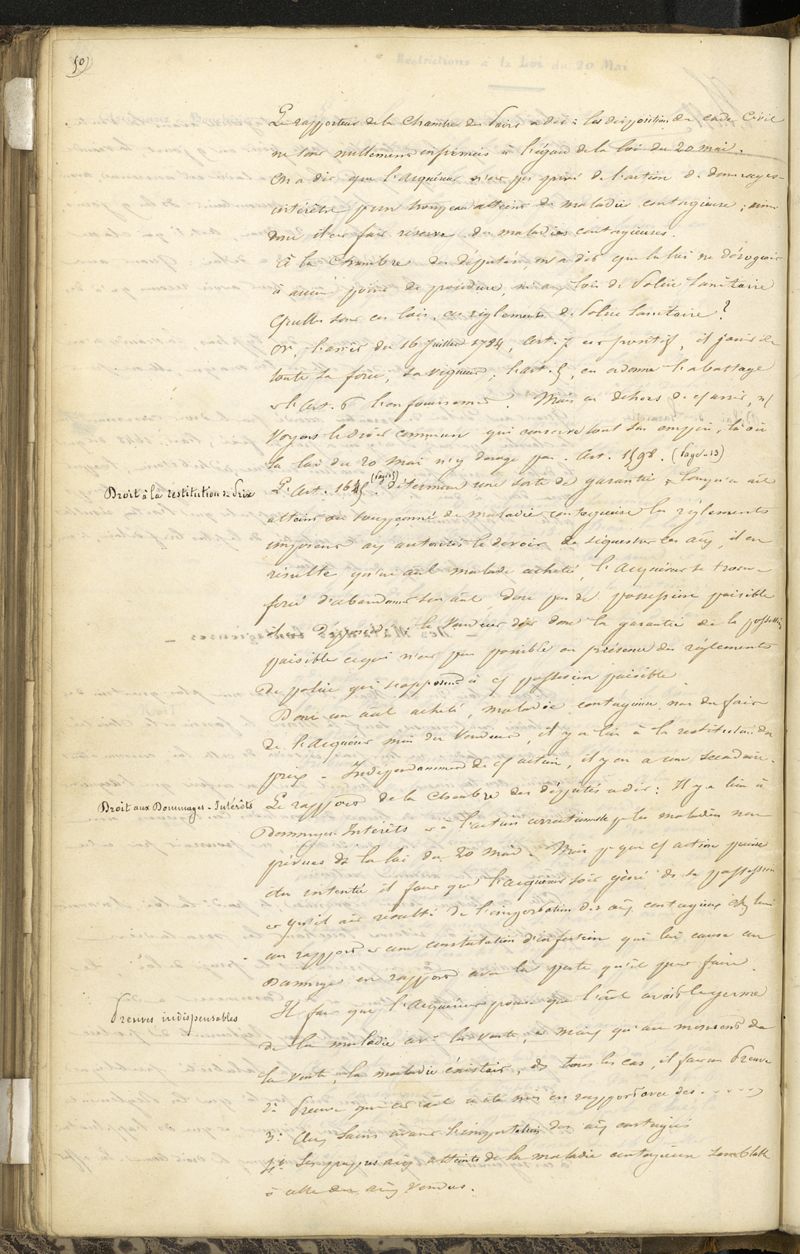 50)
Restrictions à la Loi du 20 Mai
Le rapporteur de la Chambre des Pairs a dit : les dispositions du code Civil
ne sont nullement infirmées à l'égard de la loi du 20 mai.
On a dit que l'acquéreur n'est pas privé de l'action de dommages-
intérêts pour troupeau atteint de maladie contagieuse ;
donc il est fait réserve des maladies contagieuses.
À la Chambre des députés, on a dit que la loi ne dérogeait
à aucun point de procédure, ni aux lois de Police Sanitaire
Quelles sont ces lois, ces règlements de Police Sanitaire ?
Or, l'arrêt du 16 Juillet 1784, art. 7 est positif, il jouit de
toute sa force, sa vigueur, l'art. 5, en ordonne l'abattage
& l'Art. 6 l'enfouissement. Mais en dehors de ct arrêt, ns
voyons le droit commun qui conserve tout son empire, là où
la loi du 20 mai n'y déroge pas. Art. 1598. (Page 13)
Droit à la restitution du Prix
L'Art. 1625 détermine une sorte de garantie & lorsqu'un aal
atteint ou soupçonné de maladie contagieuse les règlements
imposent aux autorités le devoir de séquestrer ces aux, il en
résulte qu'un aal malade acheté, l'acquéreur se trouve
forcé d'abandonner son aal, donc pas de possession paisible
le Vendeur doit donc la garantie de la possession
paisible ce qui n'est pas possible en présence des règlements
de police qui s'opposent à ct possession paisible.
Donc un aal acheté, maladie contagieuse, non du fait
de l'acquéreur mais du Vendeur, il y a lieu à la restitution du
prix - Indépendamment de ct action, il y en a une secondaire.
Droit aux Dommages-Intérêts
Le rapport de la Chambre des députés a dit : Il y a lieu à
Dommages Intérêts & à l'action correctionnelle pr les maladies non
prévues ds la loi du 20 mai. Mais pr que ct action puisse
être intentée il faut que l'acquéreur soit gêné ds sa possession
et qu'il ait résulté de l'importation des aux contagieux chez lui
un rapport & une constatation d'infection qui lui cause un
Dommage en rapport avec la perte qu'il peut faire.
Preuves indispensables
Il faut que l'acquéreur prouve que l'aal avait le germe
de la maladie avt la vente, & mieux qu'au moment de
la vente, la maladie existait, ds tous les cas, il faut un Preuve
2° Preuve que cet aal a été mis en rapport avec des
3° Aux sains avant l'importation des aux contagiés
4° Ses propres aux atteints de la maladie contagieuse semblable
à celle des aux Vendus.